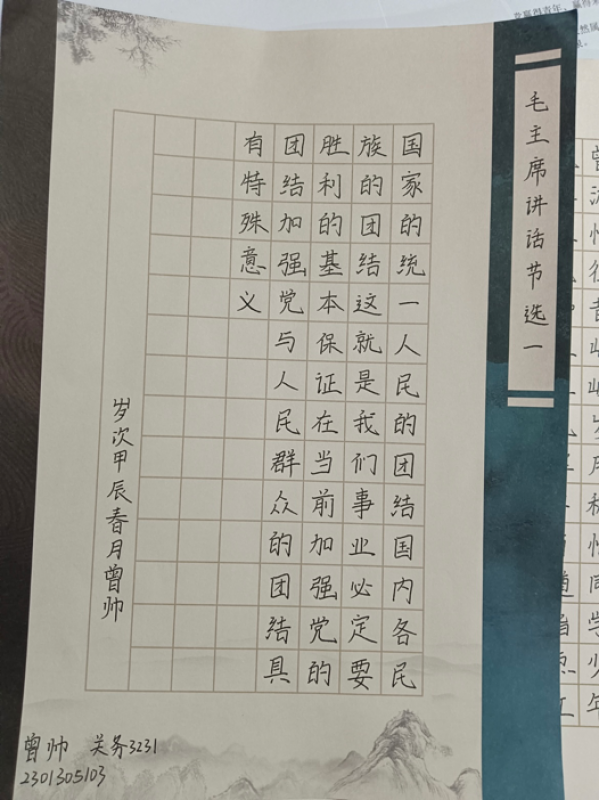 毛主席讲话节选一
国家的统一人民的团结国内各民
族的团结这就是我们事业必定要
胜利的基本保证在当前加强党的
团结加强党与人民群众的团结具
有特殊意义
岁次甲辰春月曾帅
曾帅 关务3231
2301305103